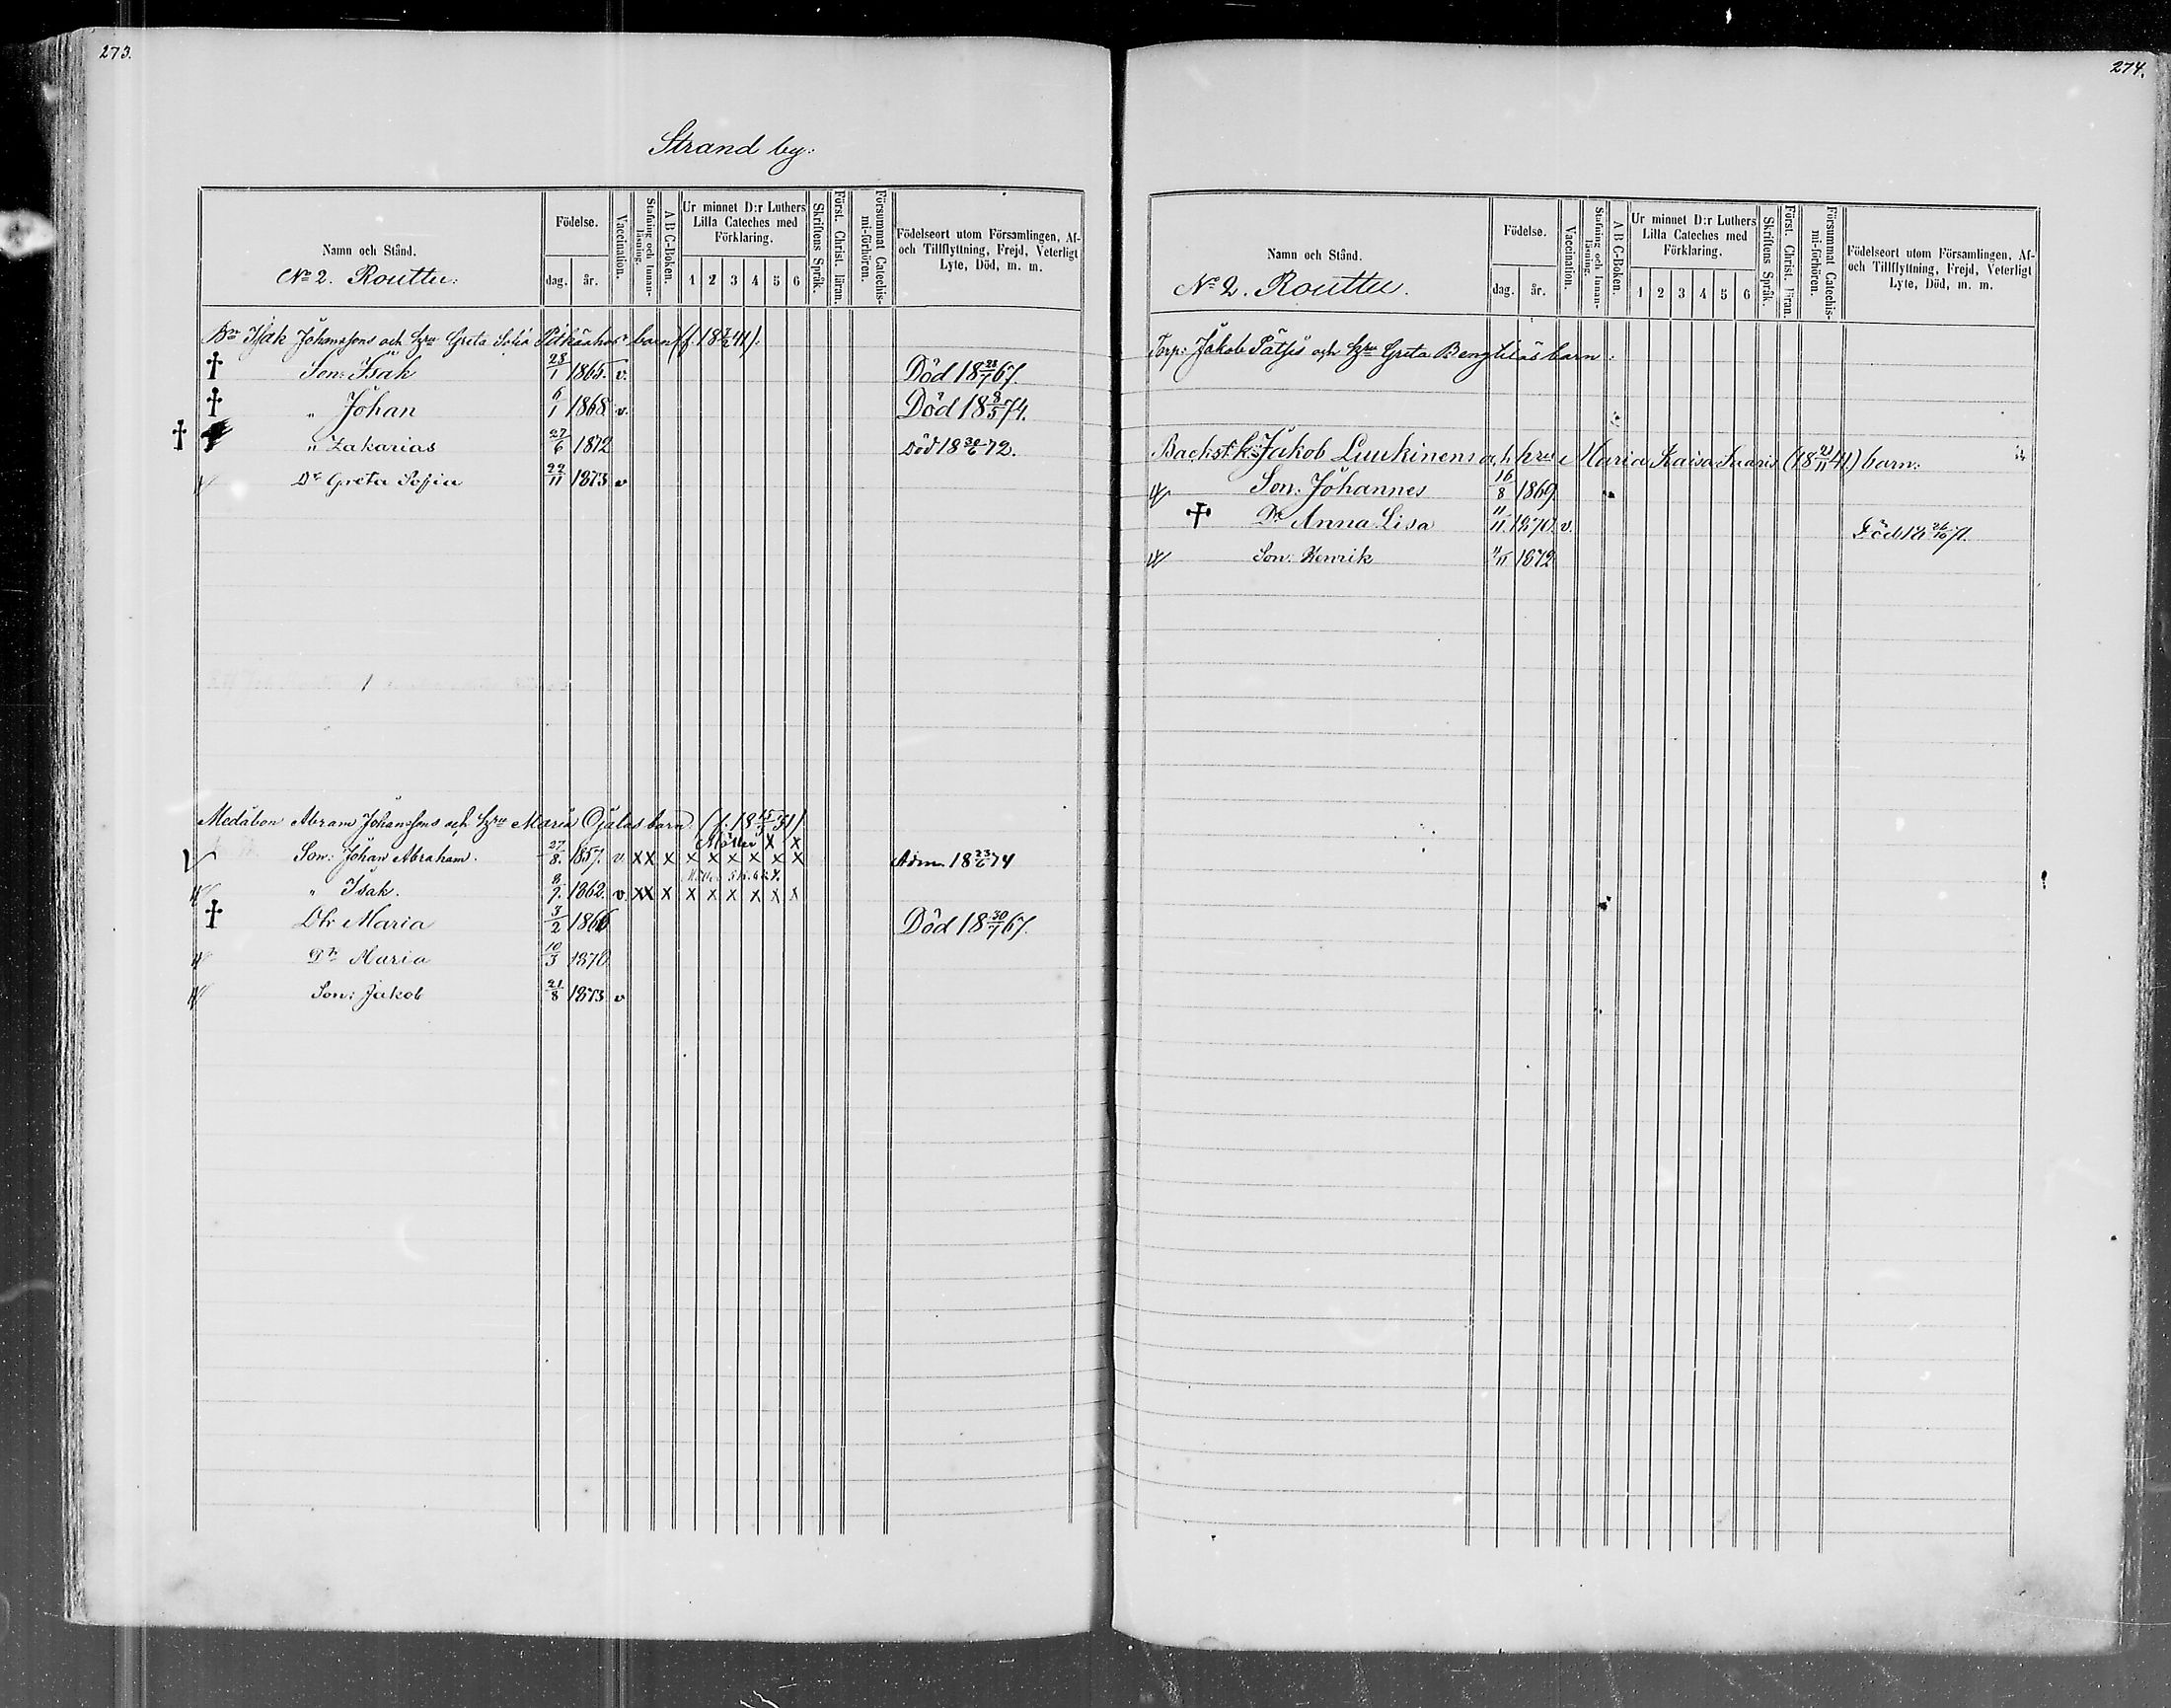 273.
Strand by:
Namn och Stånd.
No 2. Routtu:
Födelse.
dag. år.
Vaccination.
Stafning och Innan-läsning.
A B C-Boken.
Ur minnet D:r Luthers Lilla Cateches med Förklaring.
1 2 3 4 5 6
Skriftens Språk.
Först. Christ. läran.
Försummat Catechis-mi-förhören.
Födelseort utom Församlingen, Af-
och Tillflyttning, Frejd, Veterligt
Lyte, Död, m. m.
Bn Isak Johanssons och hru Greta Sofia barn
† Son: Isak 28/1 1865. v. Död 18 28/7 67.
† " Johan 6/1 1868. v. Död 18 8/5 74.
† " Zakarias 27/6 1872 Död 18 30/6 72.
Dr Greta Sofia 22/11 1873 v
Abram Johanssons och hru Maria Ojalas barn (f. 18 15/3 31)
X X
Son: Johan Abraham. 27/8. 1857. v XX X X X X X X X Adm. 18 23/6 74
" Isak. 8/7. 1862. v XX X X X X X X X
† Dtr Maria 3/2 1866 Död 18 30/7 67.
Dtr Maria 10/3 1870
Son: Jakob 21/8 1873 v
274.
Namn och Stånd.
No 2. Routtu.
Födelse.
dag. år.
Vaccination.
Stafning och Innan-läsning.
A B C-Boken.
Ur minnet D:r Luthers Lilla Cateches med Förklaring.
1 2 3 4 5 6
Skriftens Språk.
Först. Christ. läran.
Försummat Catechis-mi-förhören.
Födelseort utom Församlingen, Af-
och Tillflyttning, Frejd, Veterligt
Lyte, Död, m. m.
Torp: Jakob och hru Greta barn:
Jakob Luukinens o. h. hru Maria Kaisa Saaris (18 21/11 41.) barn:
Son: Johannes 16/8 1869
† Dr Anna Lisa 11/11 1870. v. Död 18 26/10 71.
Son: Henrik 11/11 1872